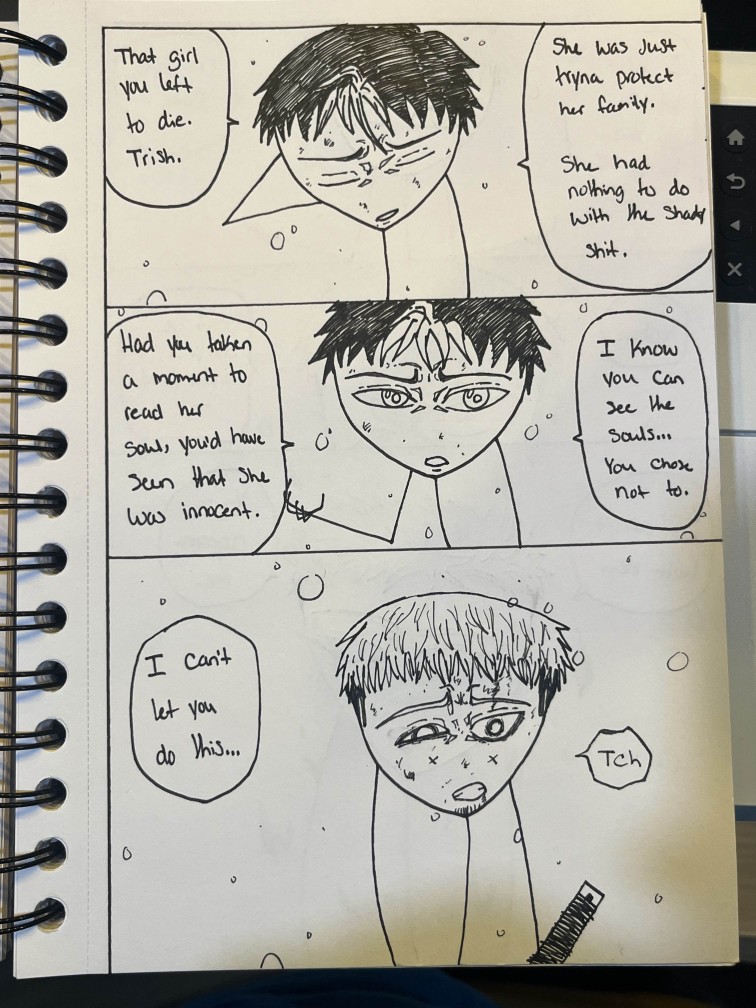 That girl
you left
to die.
Trish.
She was just
tryna protect
her family.
She had
nothing to do
with the shady
shit.
Had you taken
a moment to
read her
soul, you'd have
seen that she
was innocent.
I know
you can
see the
souls...
You chose
not to.
I can't
let you
do this...
Tch